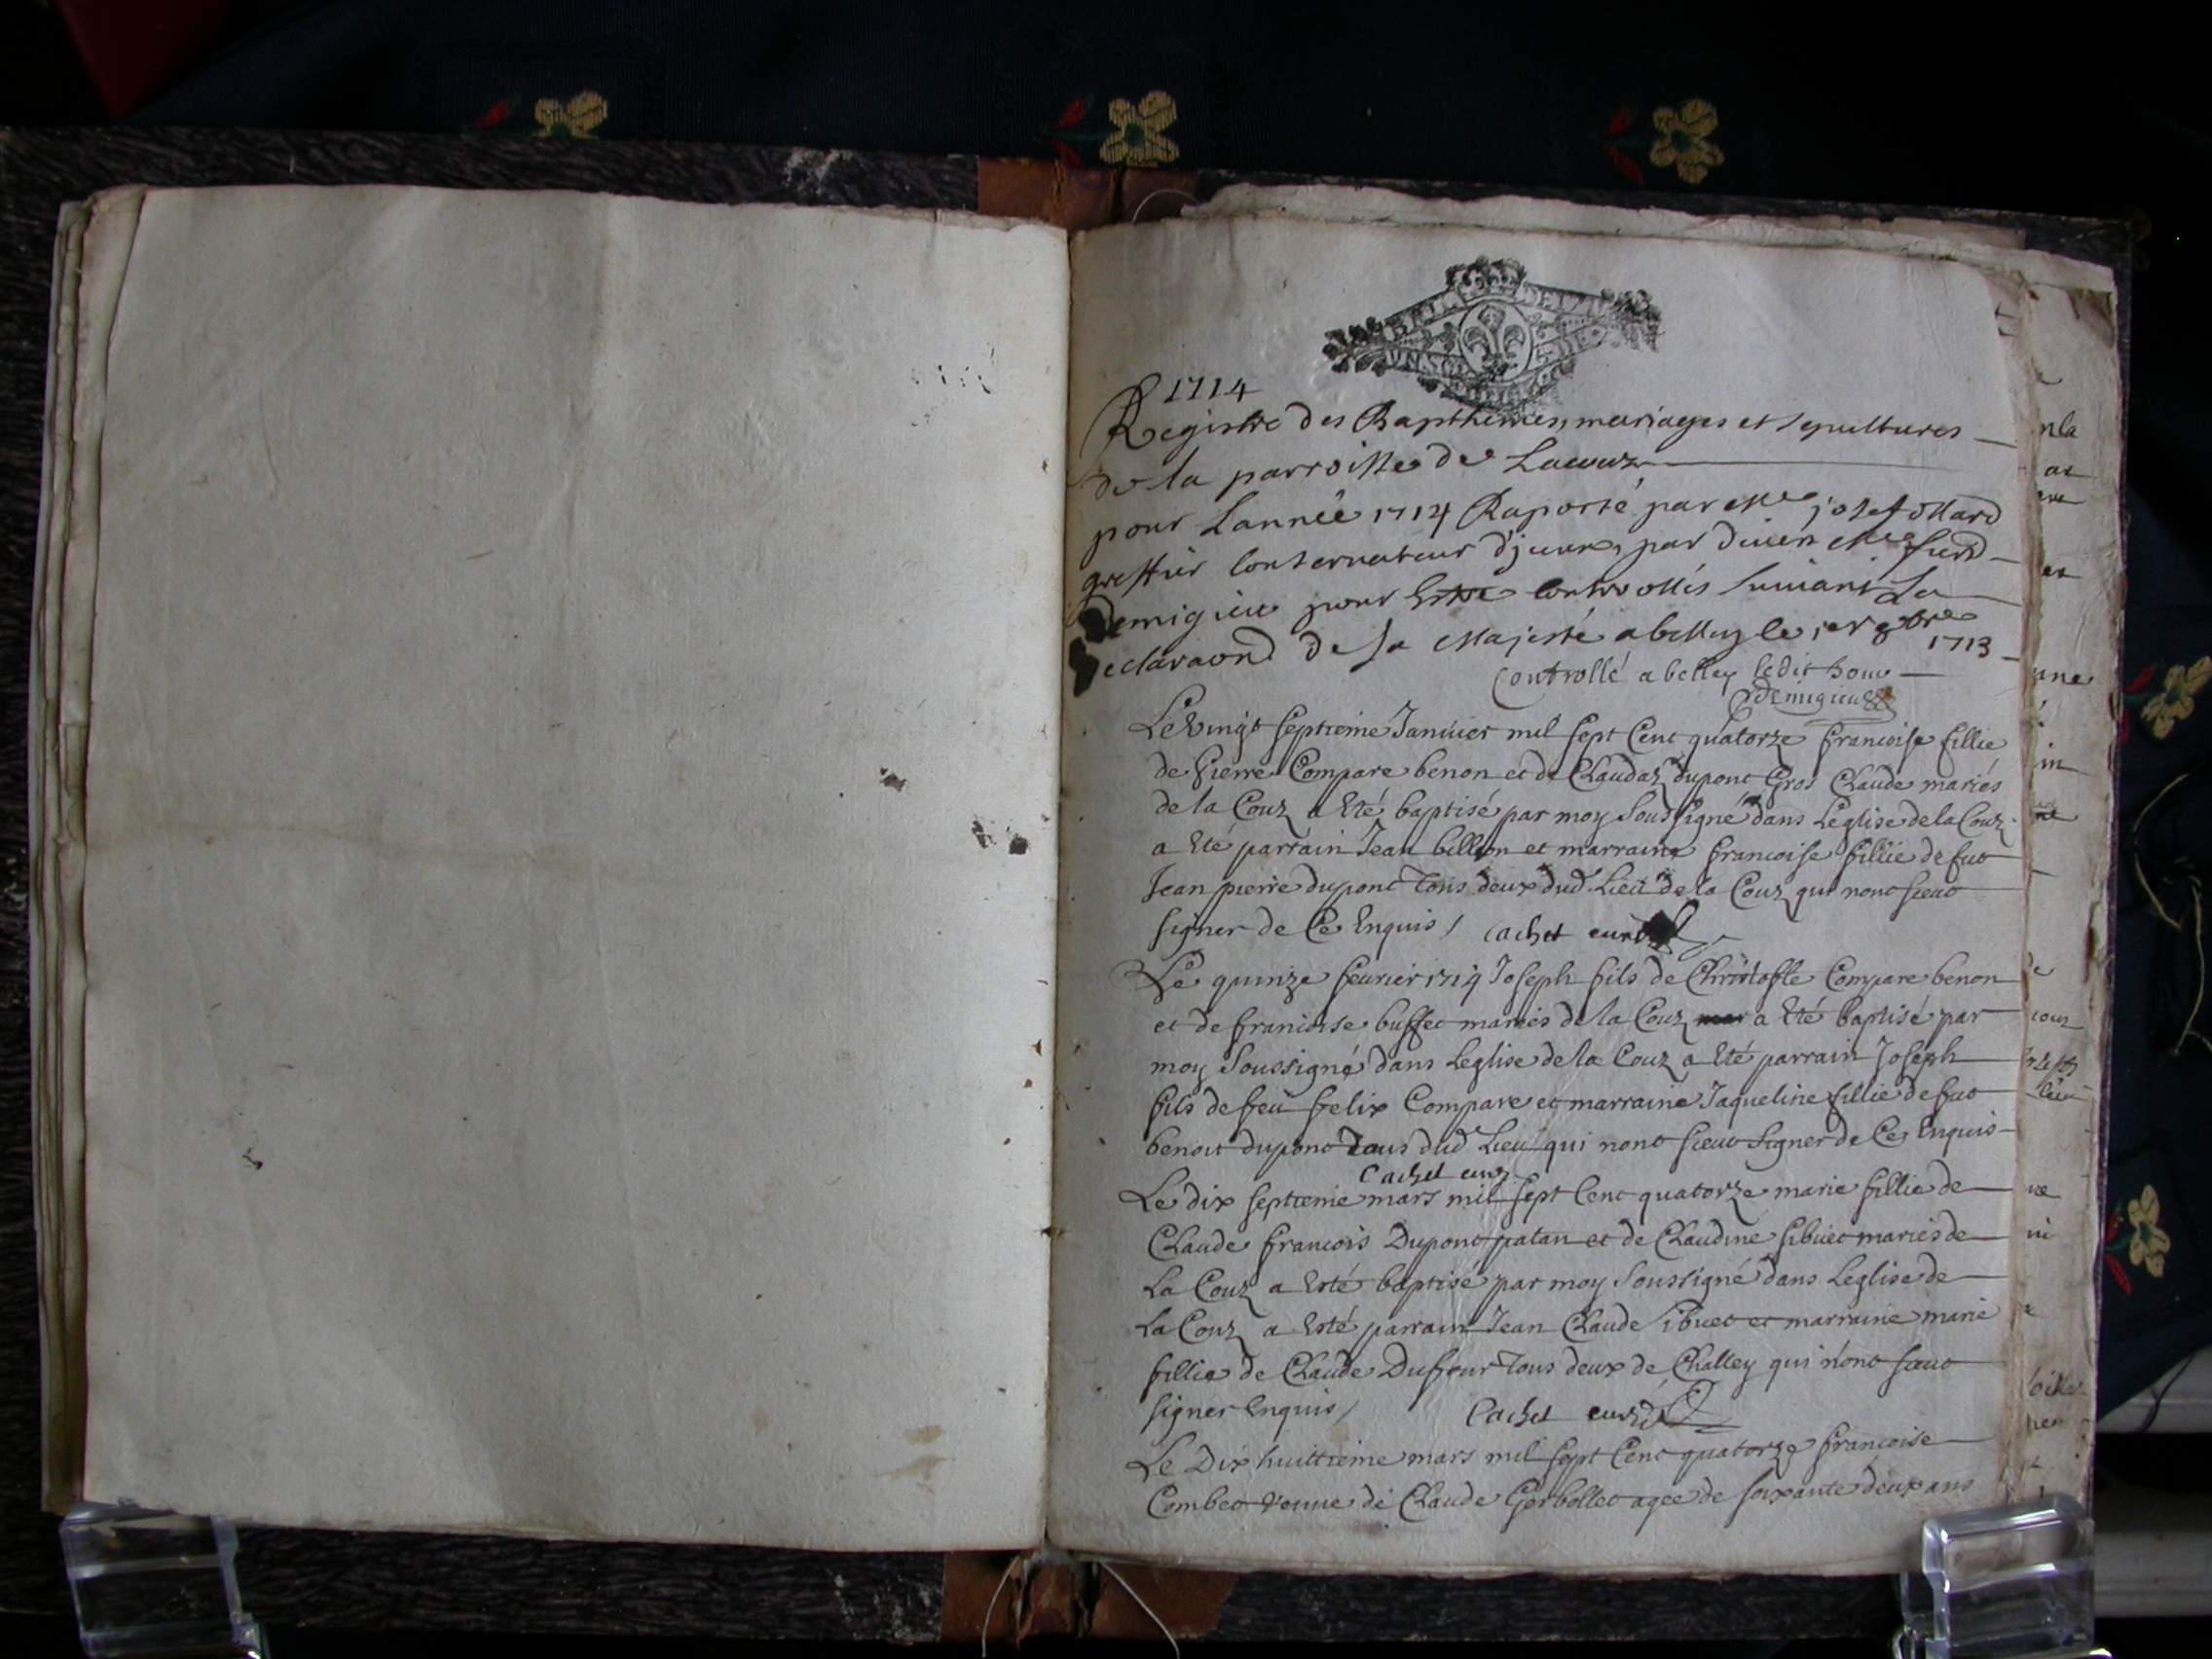 1714
Registre des Bapthemes, mariages et sepultures
de la parroisse de Lacouz
pour Lanneé 1714 Raporté par Mre josef ollard
greffier Conservateur d'jceux, par devers Mre
Demigieu pour Estre controollés suivant La
declaraon de sa Majesté a belley le jer 8bre
1713
Controllé a belley ledit Jour
Demigieu
Le vingt septieme Janvier mil sept Cent quatorze francoise fillie
de Pierre Compare benon et de Claudaz dupont Gros Claude mariés
de la Couz a Eté baptisé par moy Soussigné dans Leglise de la Couz
a Eté parrain Jean billion et marraine francoise fillie de fut
Jean pierre dupont Tous deux dud Lieu de la Couz qui nont sceut
signer de Ce Enquis / cachet curé
Le quinze fevrier 1714 Joseph fils de Christofle Compare benon
et de francoise buffet mariés de la Couz a Eté baptisé par
moy Soussigné dans Leglise de la Couz a Eté parrain Joseph
fils de feu felix Compare et marraine Jaqueline fillie de fut
benoit dupont Tous dud Lieu qui nont sceut signer de Ce Enquis
Cachet curé
Le dix septieme mars mil sept Cent quatorze marie fillie de
Claude francois Dupont patan et de Claudine sibuet mariés de
La Couz a Esté baptisé par moy Soussigné dans Leglise de
La Couz a Esté parrain Jean Claude sibuet et marraine marie
fillie de Claude Dufour Tous deux de Challey qui n'ont sceut
signer Enquis / Cachet curé
Le Dix huittieme mars mil sept Cent quatorze francoise
Combet veuve de Claude Gerbollet agee de soixante deux ans